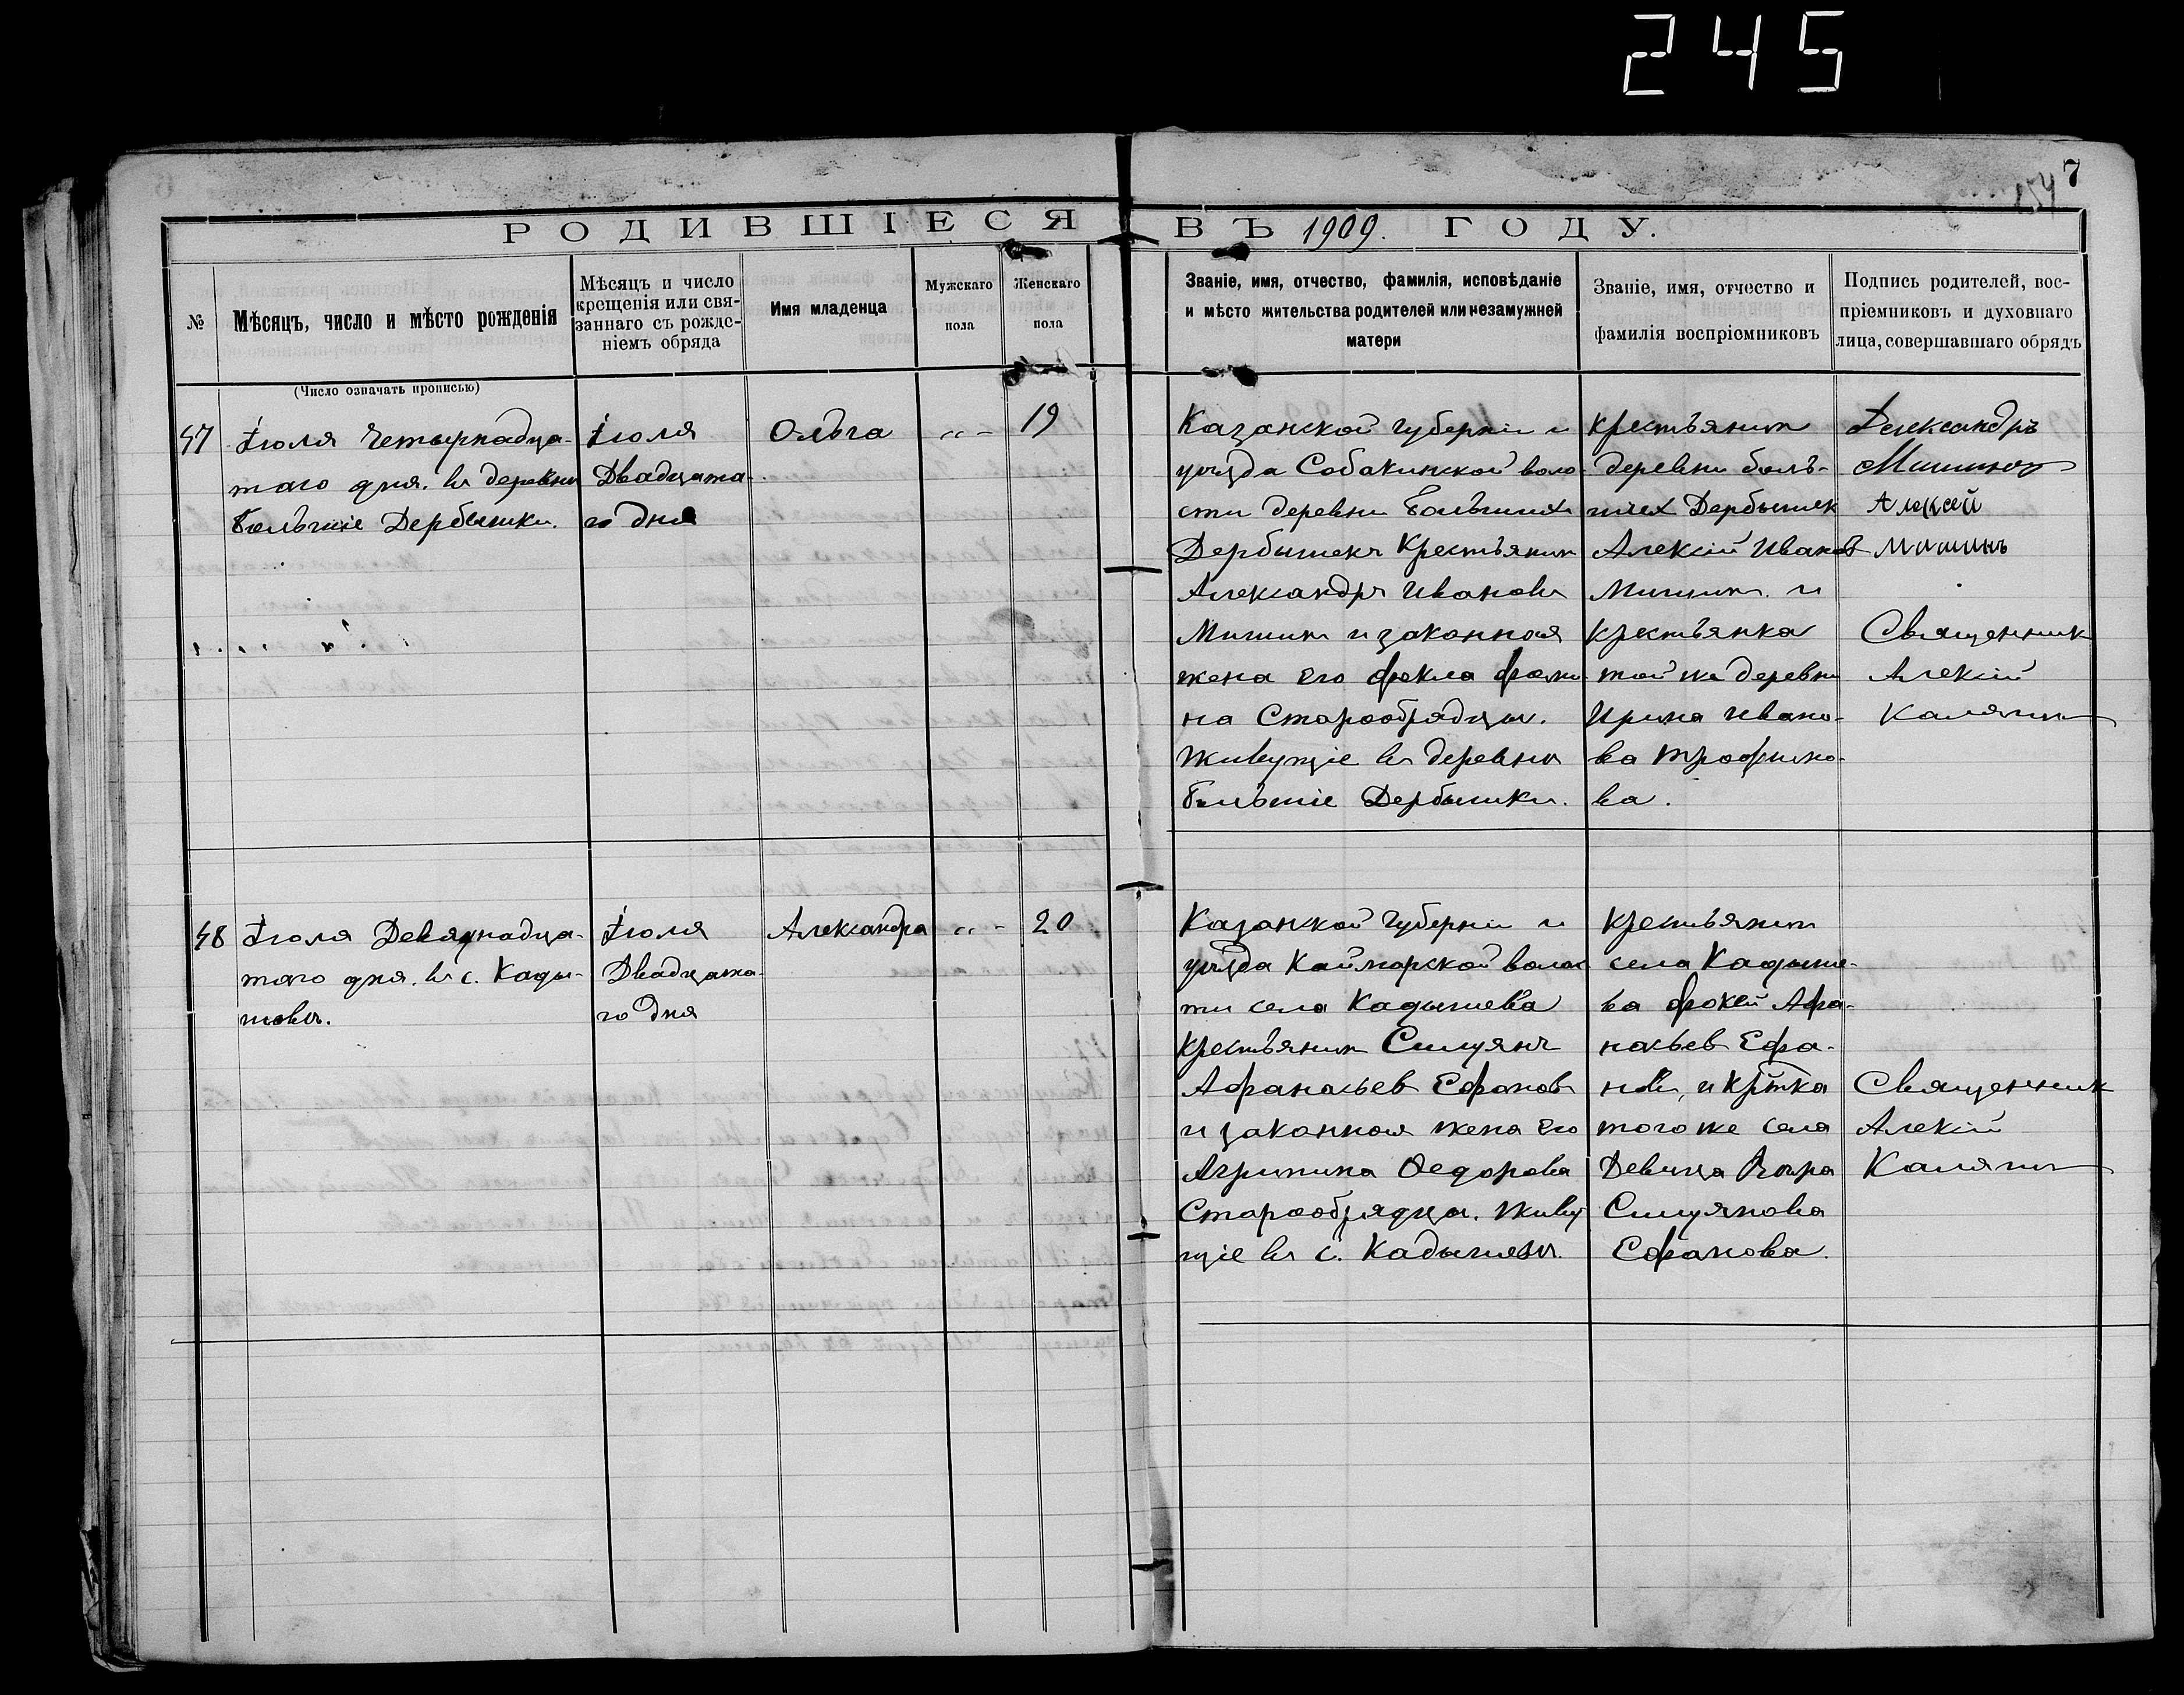 245
7
154
РОДИВШІЕСЯ ВЪ 1909. ГОДУ.
№
Мѣсяцъ, число и мѣсто рожденія
Мѣсяцъ и число
крещенія или свя-
заннаго съ рожде-
ніемъ обряда
Имя младенца
Мужскаго
пола
Женскаго
пола
Званіе, имя, отчество, фамилія, исповѣданіе
и мѣсто жительства родителей или незамужней
матери
Званіе, имя, отчество и
фамилія воспріемниковъ
Подпись родителей, вос-
пріемниковъ и духовнаго
лица, совершавшаго обрядъ
(Число означать прописью)
47
Іюля Четырнадца-
таго дня. въ деревни
Большіе Дербышки.
Іюля
Двадцата-
го дня
Ольга
„ -
19
Казанской губерніи и
уѣзда Собакинской воло-
сти деревни Большихъ
Дербышекъ Крестьянин
Александръ Ивановъ
Мишинъ и законная
жена его Фекла Фоми-
на Старообрядцы.
Живущіе въ деревни
Большіе Дербышки.
Крестьянин
деревни боль-
шихъ Дербышек
Алексій Иванов
Мишинъ. и
Крестьянка
той же деревни
Ирина Ивано-
ва Трофимо-
ва.
Александръ
Мишинъ
Алексей
Мишинъ
Священник
Алексій
Калягин
48
Іюля Девятнадца-
таго дня. въ с. Кады-
шевъ.
Іюля
Двадцата-
го дня
Александра
„ -
20
Казанской Губерніи и
уѣзда Каймарской волос
ти села Кадышева
Крестьянин Силуянъ
Афанасьев Ефанов
и законная жена его
Агрипина Ѳедорова
Старообрядцы. Живу
щіе въ с. Кадышевъ.
Крестьянин
села Кадыше-
ва Фокей Афа-
насьев Ефа-
нов, и кр͠тка
того же села
Девица
Силуянова
Ефанова.
Священник
Алексій
Калягин